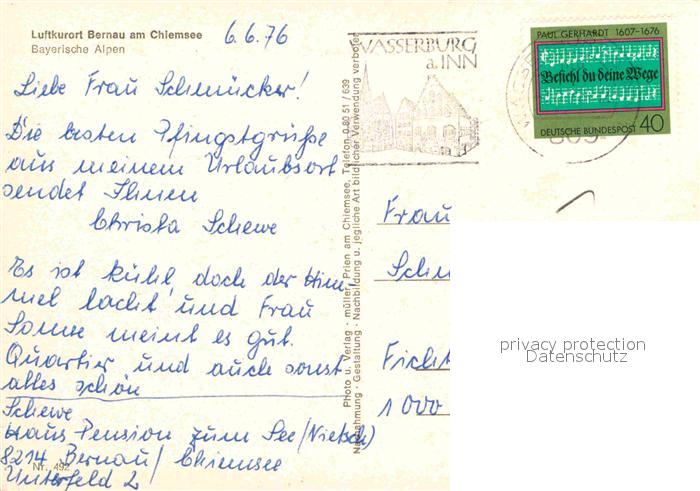 Luftkurort Bernau am Chiemsee
Bayerische Alpen
6.6.76
Liebe Frau Schmücker!
Die besten Pfingstgrüße
aus meinem Urlaubsort
sendet Ihnen
Christa Schewe
Es ist kühl, doch der Him-
mel lacht und Frau
Sonne meint es gut.
Quartier und auch sonst
alles schön
Schewe
Haus Pension zum See (Nietsch)
8214 Bernau/Chiemsee
Unterfeld 2
Nr. 492
Photo u. Verlag · müller, Prien am Chiemsee, Telefon 0 80 51 / 639
Nachahmung · Gestaltung · Nachbildung u. jegliche Art bildlicher Verwendung verboten
WASSERBURG
a. INN
PAUL GERHARDT 1607-1676
Befiehl du deine Wege
DEUTSCHE BUNDESPOST 40
Frau
Sch
Ficht
1000
privacy protection
Datenschutz